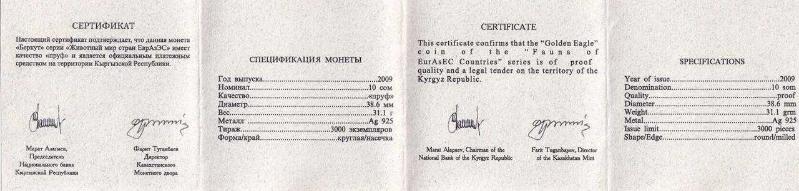 СЕРТИФИКАТ
Настоящий сертификат подтверждает, что данная монета
«Беркут» серии «Животный мир стран ЕврАзЭС» имеет
качество «пруф» и является официальным платежным
средством на территории Кыргызской Республики.
Марат Алапаев, Фарит Туганбаев
Председатель Директор
Национального банка Казахстанского
Кыргызской Республики Монетного двора
СПЕЦИФИКАЦИЯ МОНЕТЫ
Год выпуска...2009
Номинал...10 сом
Качество...«пруф»
Диаметр...38.6 мм
Вес...31.1 г
Металл...Ag 925
Тираж...3000 экземпляров
Форма/край...круглая/насечка
CERTIFICATE
This certificate confirms that the "Golden Eagle"
coin of the "Fauna of
EurAsEC Countries" series is of proof
quality and a legal tender on the territory of the
Kyrgyz Republic.
Marat Alapaev, Chairman of the Farit Tuganbayev, Director
National Bank of the Kyrgyz Republic of the Kazakhstan Mint
SPECIFICATIONS
Year of issue...2009
Denomination...10 som
Quality...proof
Diameter...38.6 mm
Weight...31.1 grm
Metal...Ag 925
Issue limit...3000 pieces
Shape/Edge...round/milled